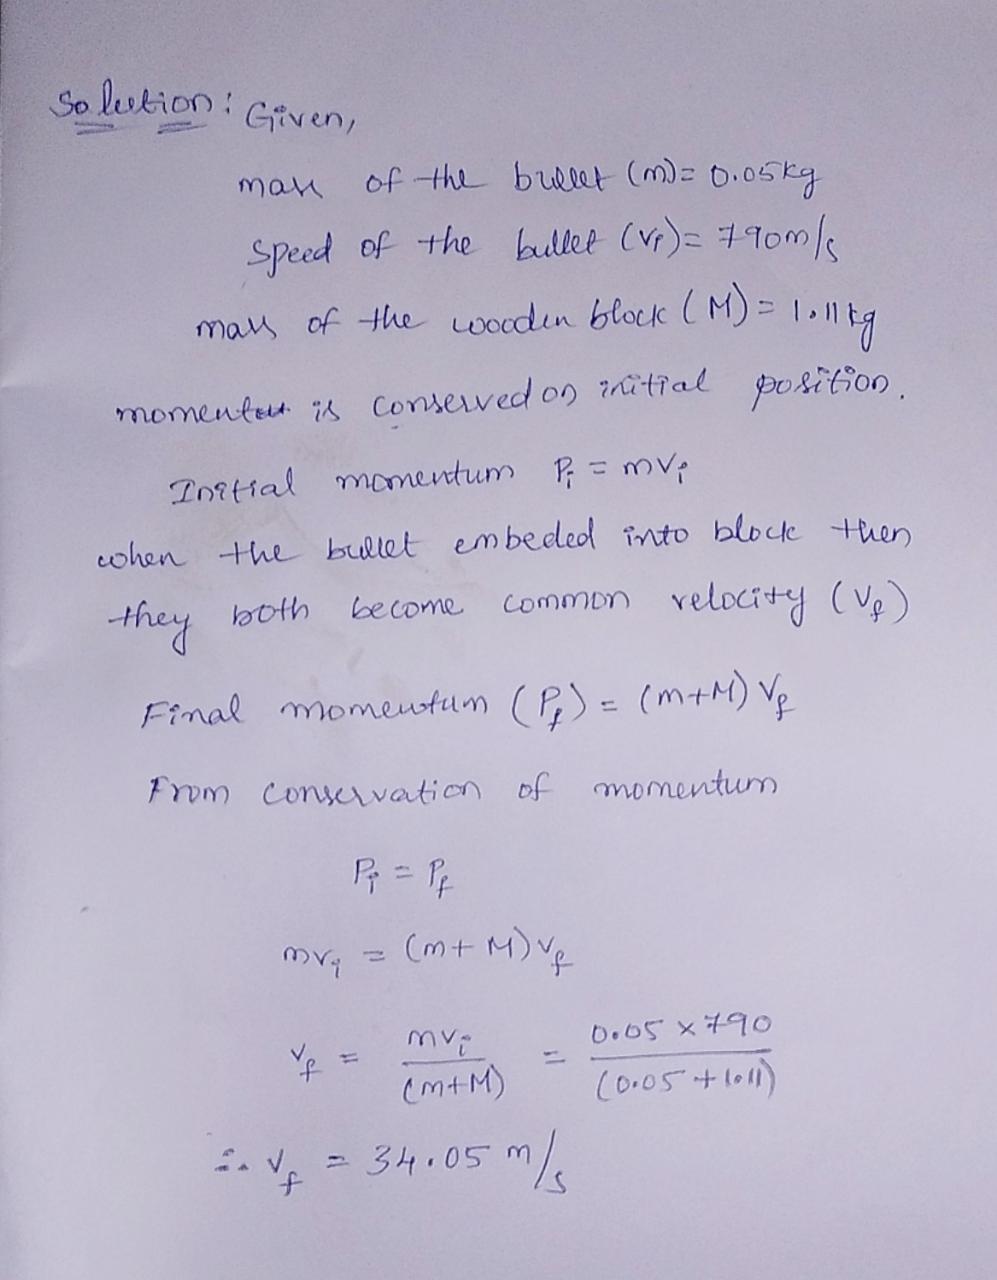 Solution: Given,
mass of the bullet (m) = 0.05kg
Speed of the bullet (vi) = 790m/s
mass of the wooden block (M) = 1.11kg
momentum is conserved on initial position.
Initial momentum Pi = mvi
when the bullet embeded into block then
they both become common velocity (Vf)
Final momentum (Pf) = (m+M) Vf
From conservation of momentum
Pi = Pf
mvi = (m+M)vf
Vf = mvi / (m+M) = 0.05 x 790 / (0.05 + 1.11)
∴ Vf = 34.05 m/s